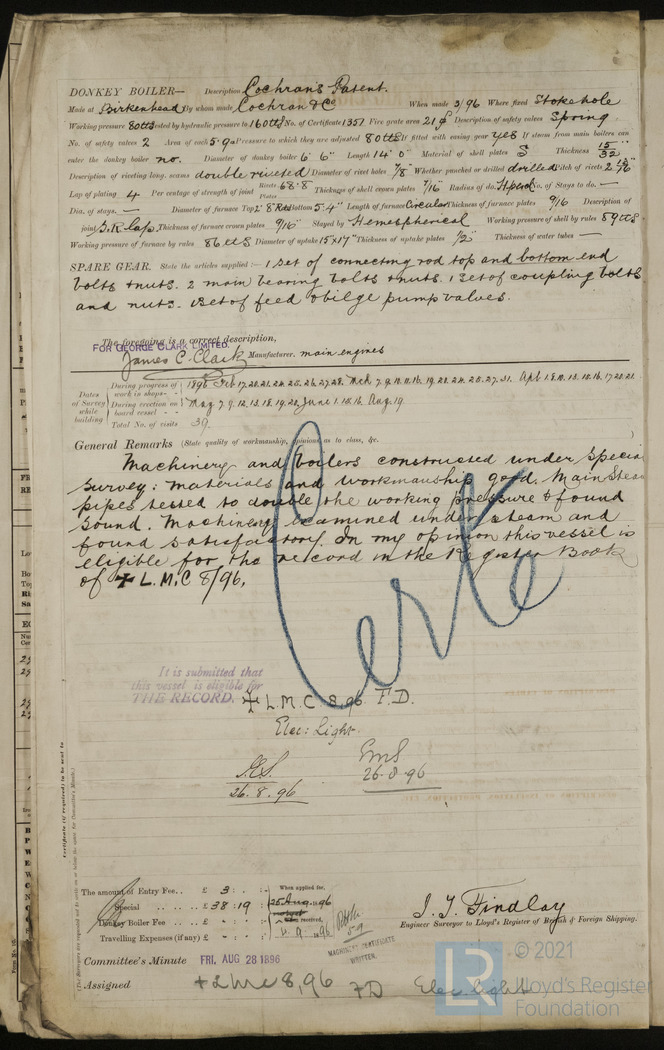 DONKEY BOILER— Description Cochran's Patent.
Made at Birkenhead By whom made Cochran & Co When made 3/96 Where fixed Stokehole
Working pressure 80 lbs tested by hydraulic pressure to 160 lbs No. of Certificate 1351 Fire grate area 21 Description of safety valves Spring
No. of safety valves 2 Area of each 5.9 Pressure to which they are adjusted 80 lbs If fitted with easing gear yes If steam from main boilers can
enter the donkey boiler no. Diameter of donkey boiler 6' 6" Length 14' 0" Material of shell plates S Thickness 15/32"
Description of riveting long. seams double riveted Diameter of rivet holes 7/8" Whether punched or drilled drilled Pitch of rivets 2 13/16"
Lap of plating 4 Per centage of strength of joint Rivets 68.8 Plates Thickness of shell crown plates 7/16" Radius of do. No. of Stays to do. —
Dia. of stays. — Diameter of furnace Top 2' 8" Bottom 5' 4" Length of furnace Circular Thickness of furnace plates 9/16 Description of
joint S.R Lap Thickness of furnace crown plates 9/16" Stayed by Hemespherical Working pressure of shell by rules 89 lbs
Working pressure of furnace by rules 86 lbs Diameter of uptake 15 x 17" Thickness of uptake plates 1/2" Thickness of water tubes —
SPARE GEAR. State the articles supplied:— 1 set of connecting rod top and bottom end
bolts & nuts. 2 main bearing bolts & nuts. 1 Set of coupling bolts
and nuts. 1 Set of feed & bilge pump valves.
The foregoing is a correct description,
FOR GEORGE CLARK LIMITED.
James C. Clark Manufacturer. main engines
Dates of Survey while building
During progress of work in shops - - 1896 Feb 17.20.21.24.25.26.27.28. Mch 7.9.10.11.16.19.20.24.25.27.31. Apl 1.8.10.13.15.16.17.20.21.
During erection on board vessel - - - May 7.9.12.13.18.19.20. June 1.13.16. Aug. 19
Total No. of visits 39
General Remarks (State quality of workmanship, opinions as to class, &c.
Machinery and boilers constructed under special
survey: materials and workmanship good. Main Steam
pipes tested to double the working pressure & found
sound. Machinery examined under steam and
found satisfactory. In my opinion this vessel is
eligible for the record in the Register Book
of + L.M.C 8/96.
It is submitted that
this vessel is eligible for
THE RECORD. + L.M.C. 8.96 F.D.
Elec: Light.
26.8.96
26.8.96
The amount of Entry Fee .. £ 3 : : When applied for,
Special .. .. £ 38 : 19 : 25 Aug 1896
Donkey Boiler Fee .. .. £ - : : When received,
Travelling Expenses (if any) £ - : :
MACHINERY CERTIFICATE
WRITTEN.
J. T. Findlay
Engineer Surveyor to Lloyd's Register of British & Foreign Shipping.
Committee's Minute FRI. AUG 28 1896
Assigned + LMC 8,96 FD Elec. light
© 2021
LR
Lloyd's Register
Foundation